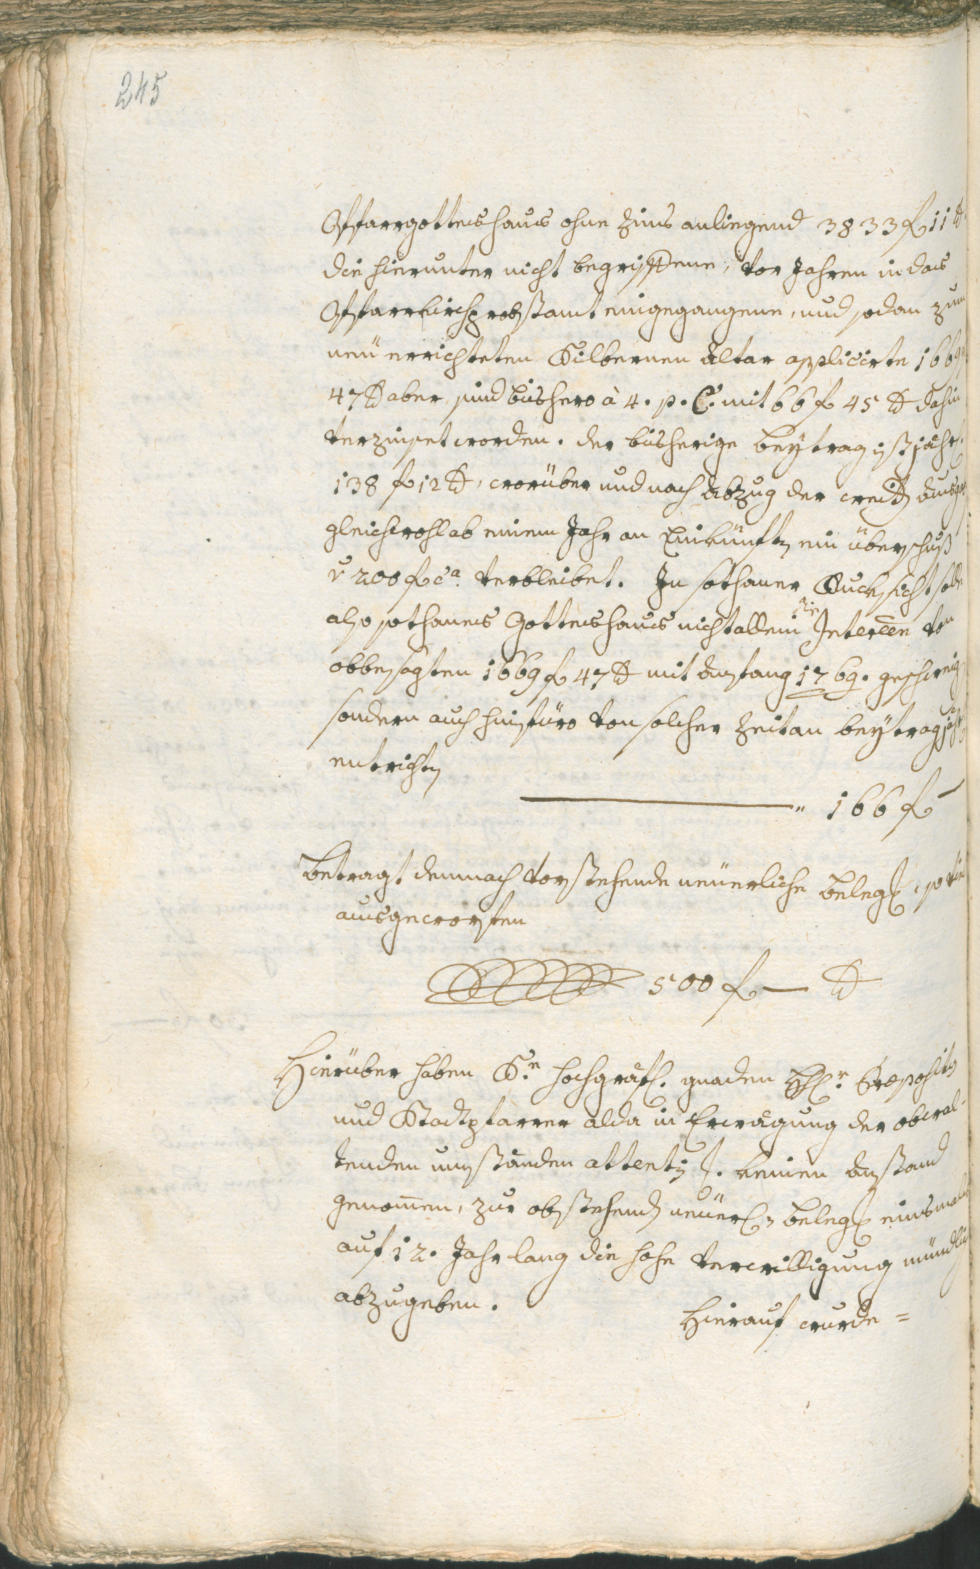 245
Pfarrgotteshaus ohne Zins anligend 3833 f 11 d
die hierunter nicht begriffene, vor Jahren in das
Pfarrkirchprobstamt eingegangene, und sodan zum
neu errichteten Silbernen Altar applicirte 1669 f
47 d aber, sind bishero à 4. p. C. mit 66 f 45 d dahin
verzinset worden. der bisherige beytrag ist jährl.
138 f 12 d, worüber und nach Abzug der
gleichwohl ab einem Jahr an Einkünften ein überschuß
v 200 f ca. verbleibet. In sothaner Rucksicht solle
also sothanes Gotteshaus nicht allein die Interessen von
obbesagten 1669 f 47 d mit Anfang 1769.
sondern auch hinfüro von solcher Zeit an beytrag
entrichten
" 166 f —
Betragt demnach vorstehende neuerliche belegs,
ausgeworfen
500 f — d
Hierüber haben Sr. hochgräfl. gnaden Hr. Præpositus
und Stadtpfarrer alda in Erwägung der obwal-
tenden umständen keinen Anstand
genommen, zur obstehenden neuerl. beleg einsmal
auf 12. Jahr lang die hohe verwilligung mündlich
abzugeben.
Hierauf wurde =